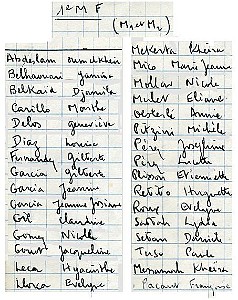 1e M F
(M1 et M2)
Abdeslam oumelkheir
Belhaouari yamina
Belkaid Djamila
Carillo Marthe
Delos geneviève
Diaz Louise
Fernandez gilberte
Garcia gilberte
Garcia Jeanne
Garcia Jeanne Josiane
Gil Claudine
Gomez Nicole
Jacqueline
Leca Hyacinthe
Llorca Evelyne
Mekerta Kheira
Mico Marie Jeanne
Mollar Nicole
Mulet Eliane
Oesterle Annie
Pitzini Michèle
Pérez Josephine
Pérez Lucette
Plisson Etiennette
Retitto Huguette
Roney Evelyne
Lydia
Setian Danièle
Tuso Paule
Messamah Kheira
Pacaud Françoise